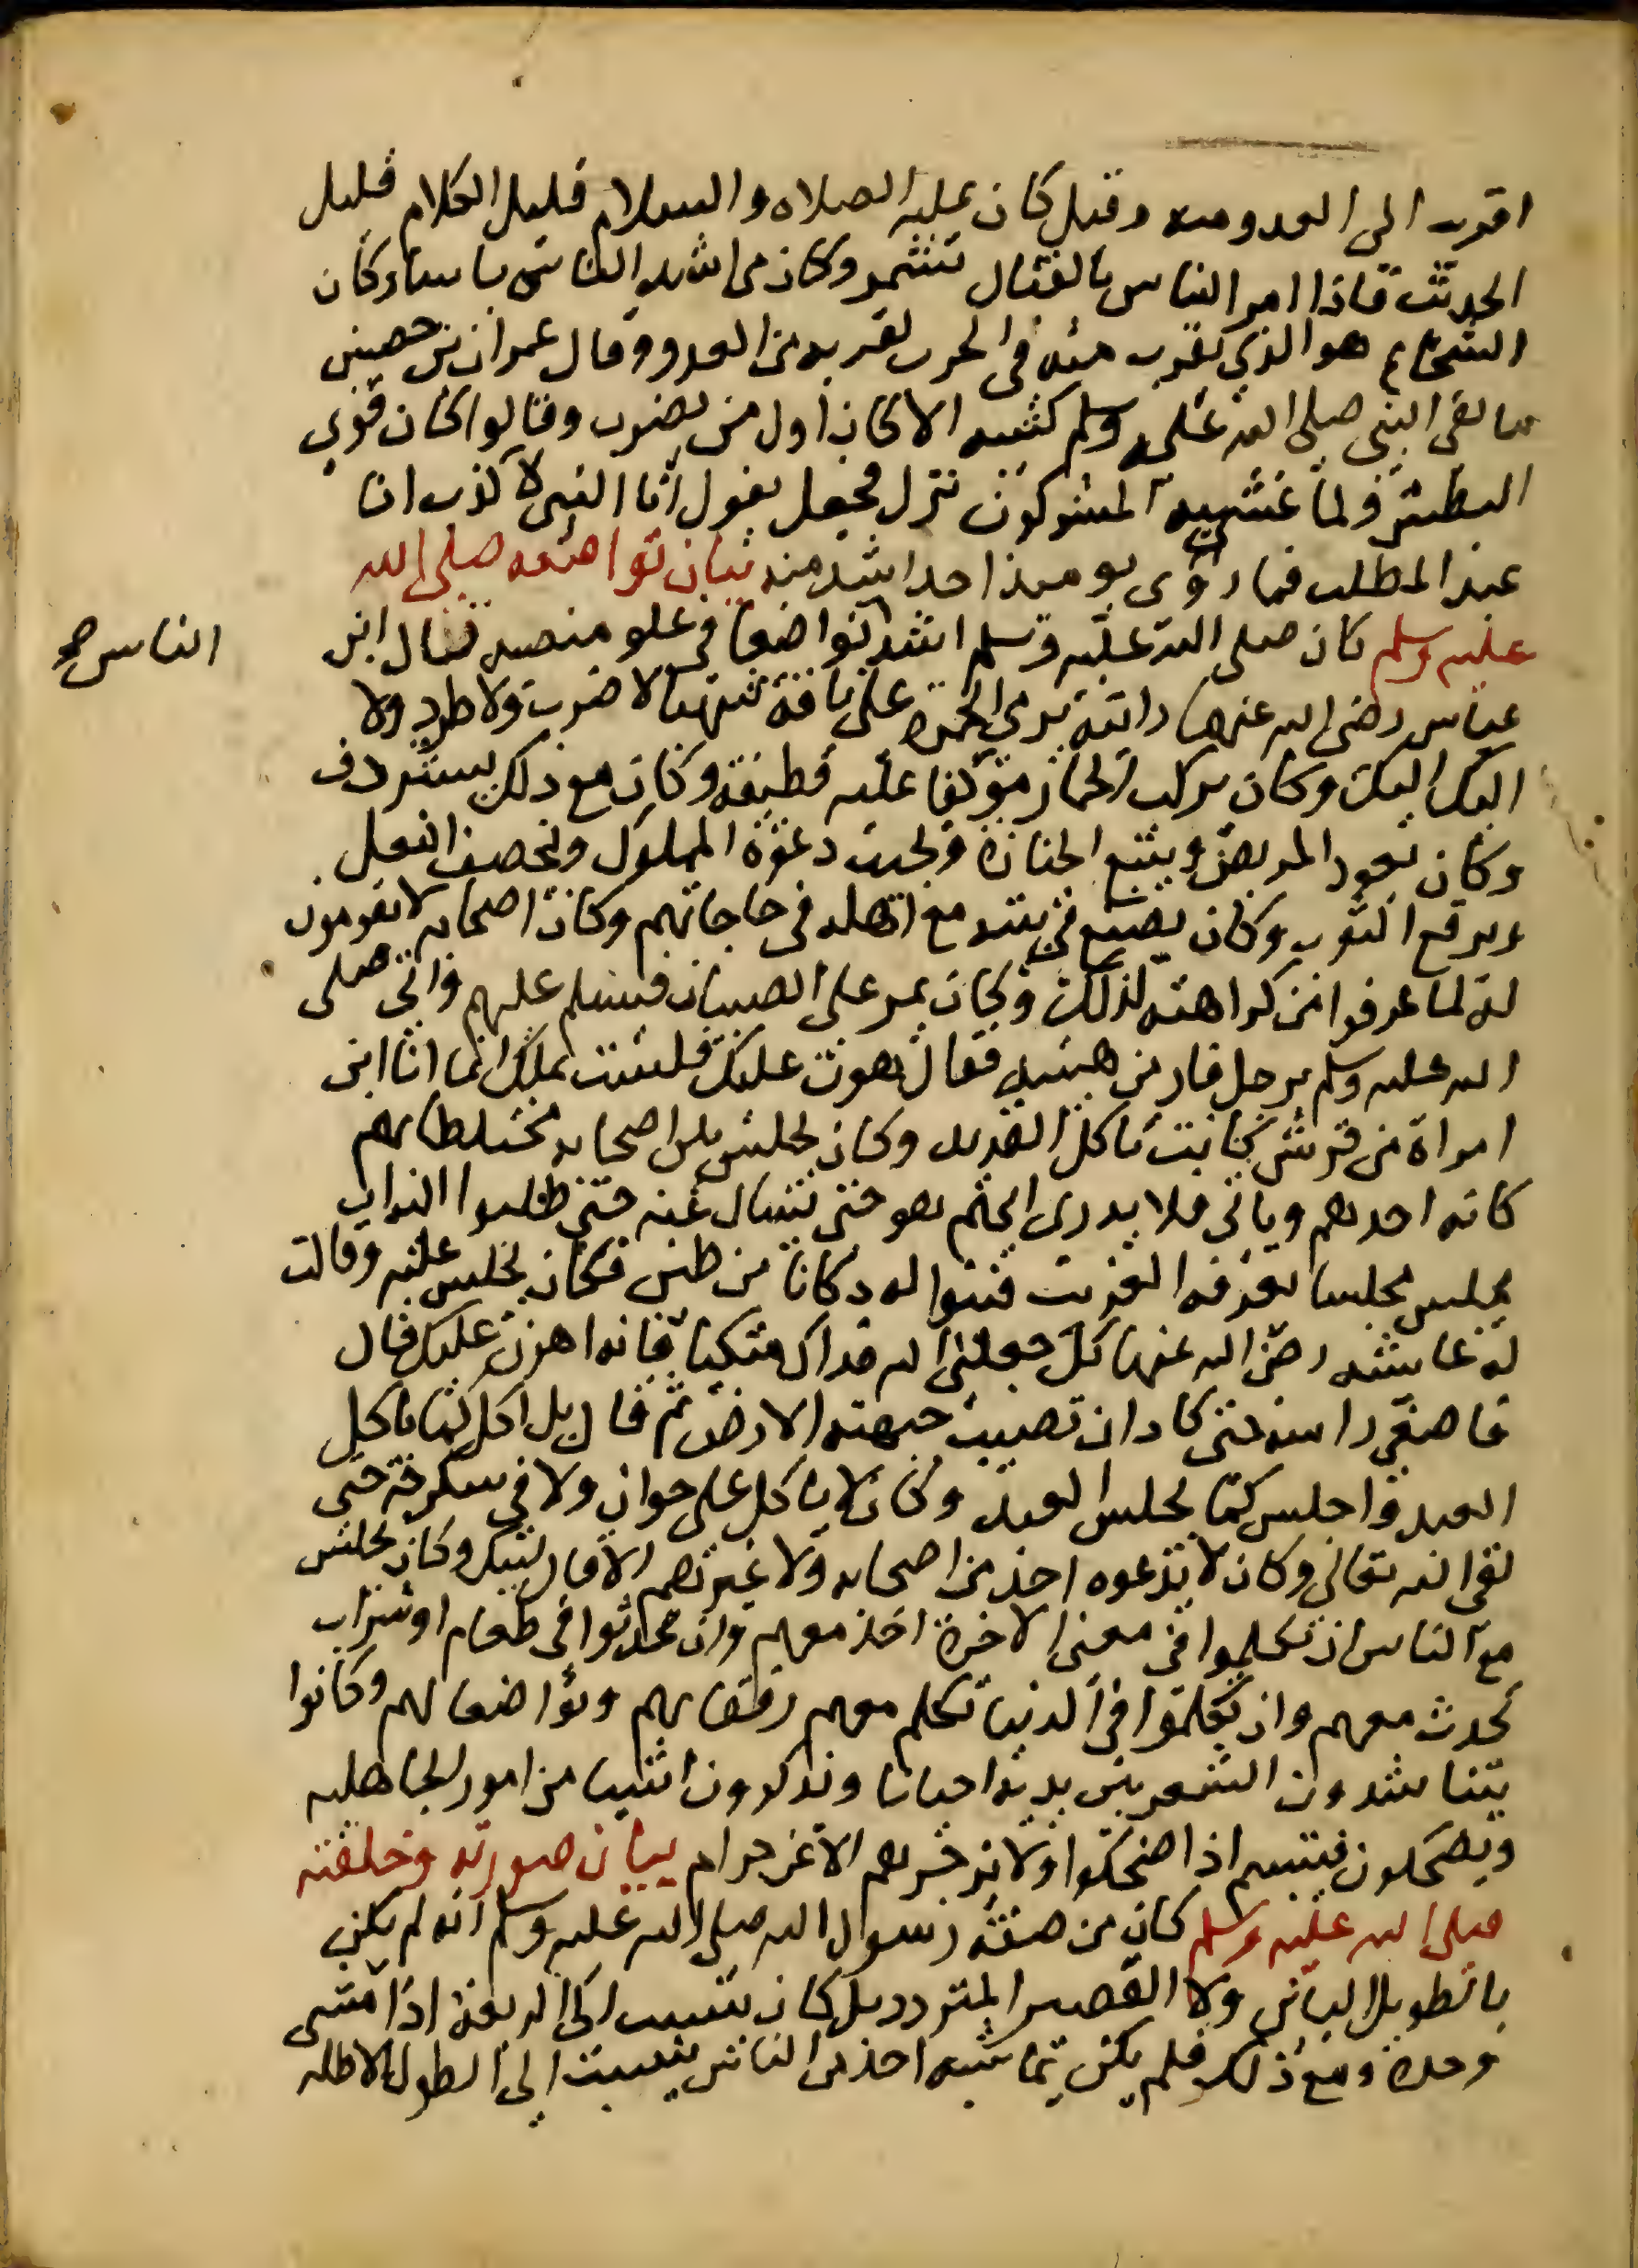 اقرب الى العدو منه وقيل كان عليه الصلاه والسلام قليل الكلام قليل
الحديث فاذا امر الناس بالقتال تشمر وكان من اشد الناس باسا وكان
الشجاع هو الذي يقرب منه في الحرب لقربه من العدو وقال عمران بن حصين
ما لقي النبي صلى الله عليه وسلم كتيبه الا كان اول من يضرب وقالوا كان قوي
البطش ولما غشيه المشركون نزل فجعل يقول انا النبي لا كذب انا
عبد المطلب فما رؤي يومئذ احد اشد منه بيان تواضعه صلى الله
عليه وسلم كان صلى الله عليه وسلم اشد تواضعا في علو منصبه قال ابن
الناس
عباس رضي الله عنهما رايته يرمي الجمرة على ناقة شهبا لا ضرب ولا طرد ولا
اليك اليك وكان يركب الحمار موكفا عليه قطيفة وكان مع ذلك يستردف
وكان يعود المريض ويتبع الجنازة ويجيب دعوة المملوك ويخصف النعل
ويرقع الثوب وكان يصنع في بيته مع اهله في حاجاتهم وكان اصحابه لا يقومون
له لما عرفوا من كراهته لذلك وكان يمر على الصبيان فيسلم عليهم واتي صلى
الله عليه وسلم برجل فارعد من هيبته فقال هون عليك فلست بملك انما انا ابن
امراة من قريش كانت تاكل القديد وكان يجلس بين اصحابه مختلطا بهم
كانه احدهم وياتي فلا يدري ايهم هو حتى يسال عنه حتى طلبوا اليه ان
يجلس مجلسا يعرفه الغريب فبنوا له دكانا من طين فكان يجلس عليه وقالت
له عايشه رضي الله عنها كل جعلني الله فداك متكيا فانه اهون عليك قال
فاصغى راسه حتى كاد ان تصيب جبهته الارض ثم قال بل اكل كما ياكل
العبد واجلس كما يجلس العبد وكان لا ياكل على خوان ولا في سكرجة حتى
لقي الله تعالى وكان لا يدعوه احد من اصحابه ولا غيرهم الا قال لبيك وكان يجلس
مع الناس ان تكلموا في معنى الاخرة اخذ معهم وان تحدثوا في طعام او شراب
تحدث معهم وان تكلموا في الدنيا تكلم معهم رفقا بهم وتواضعا لهم وكانوا
يتناشدون الشعر بين يديه احيانا ويذكرون اشيا من امور الجاهليه
ويضحكون فيتبسم اذا ضحكوا ولا يزجرهم الا عن حرام بيان صورته وخلقته
صلى الله عليه وسلم كان من صفة رسول الله صلى الله عليه وسلم انه لم يكن
بالطويل الباين ولا القصير المتردد بل كان ينسب الى الربعة اذا مشى
وحده ومع ذلك فلم يكن يماشيه احد من الناس ينسب الى الطول الا طاله